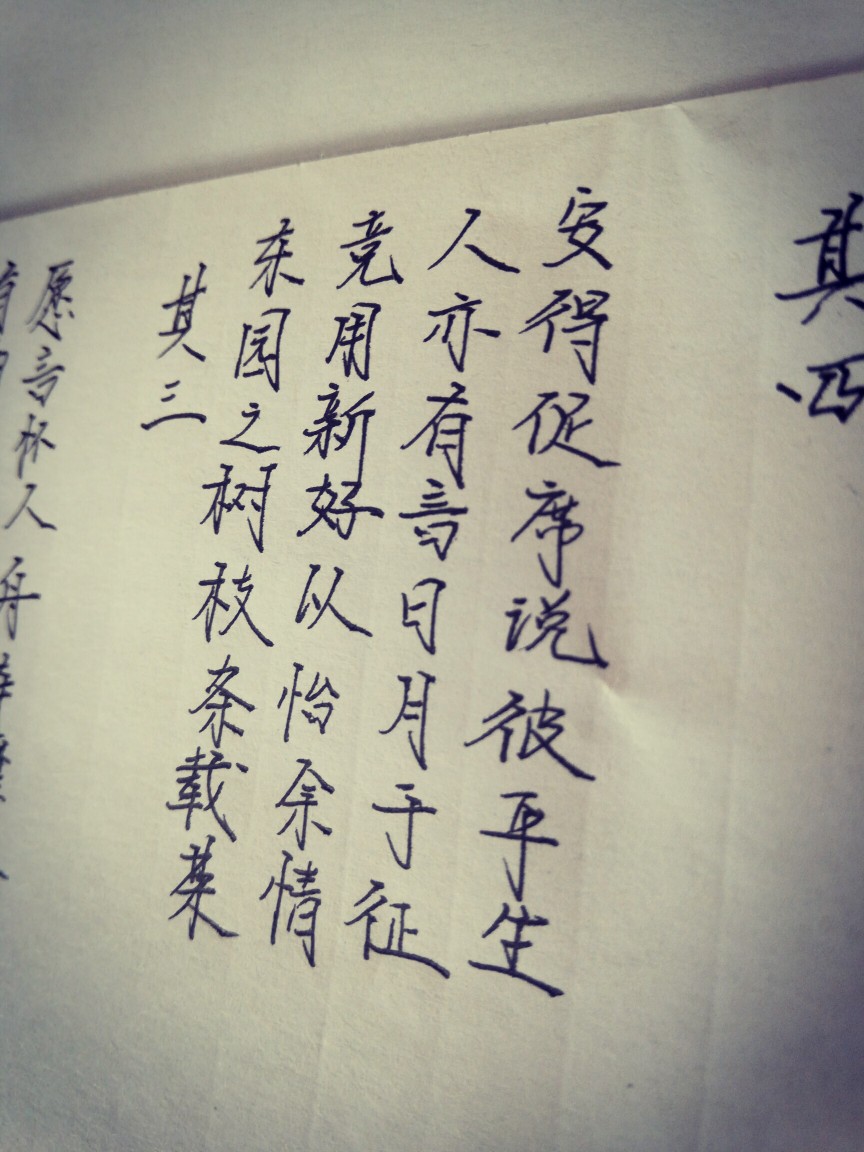 愿言怀人舟
其三
东园之树枝条载荣
竞用新好以怡余情
人亦有言日月于征
安得促席说彼平生
其四